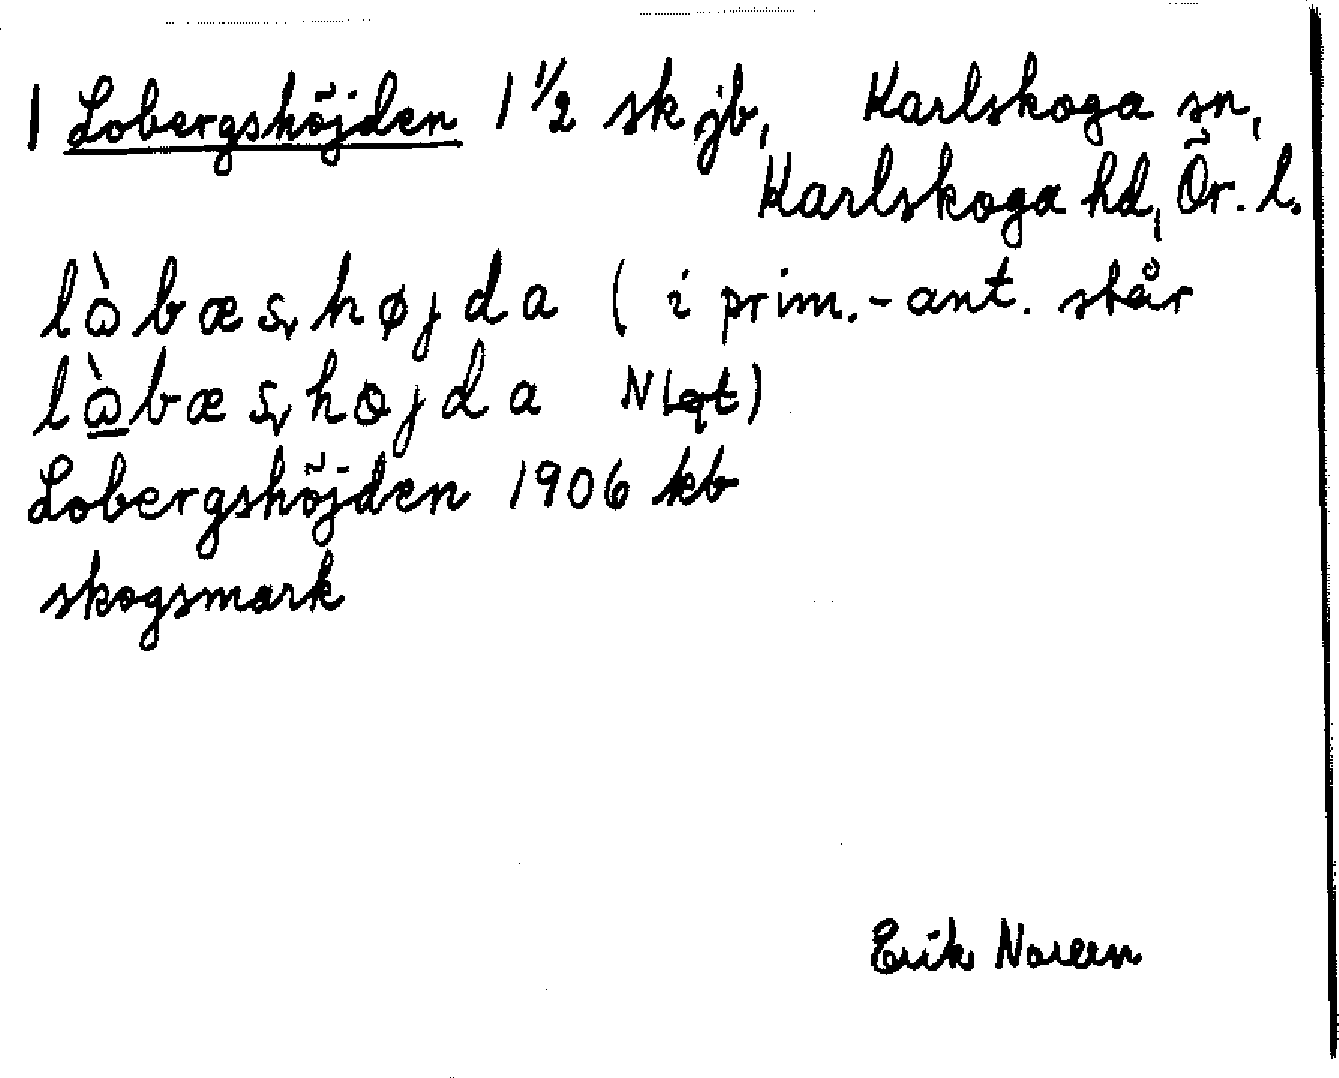 1 Lobergshöjden 1 ½ sk jb, Karlskoga sn,
Karlskoga hd, Ör. l.
lòbæsˎhøjda (i prim.-ant. står
lò̲bæsˎhojda
Lobergshöjden 1906 kb
skogsmark
Erik Noreen